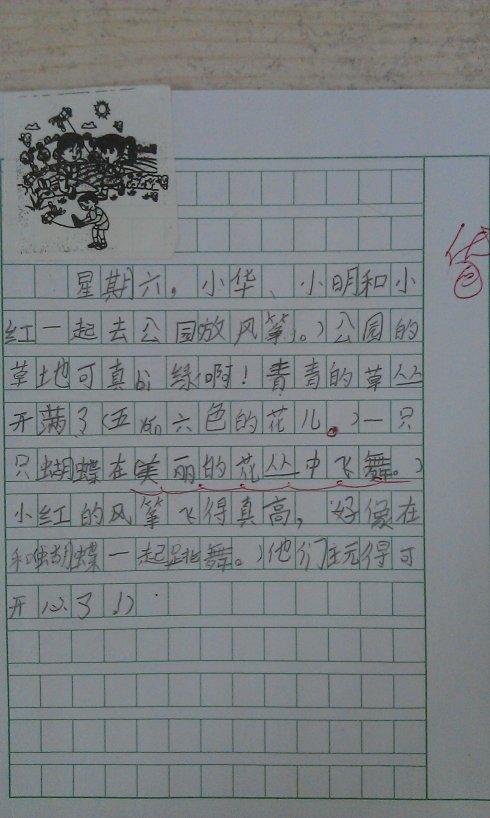 星期六，小华、小明和小
红一起去公园放风筝。）公园的
草地可真的绿啊！青青的草丛
开满了（五颜六色的花儿。）一只
只蝴蝶在（美丽的花丛中飞舞。）
小红的风筝飞得真高，好像在
和蝴蝶一起跳舞。）他们玩得可
开心了！）